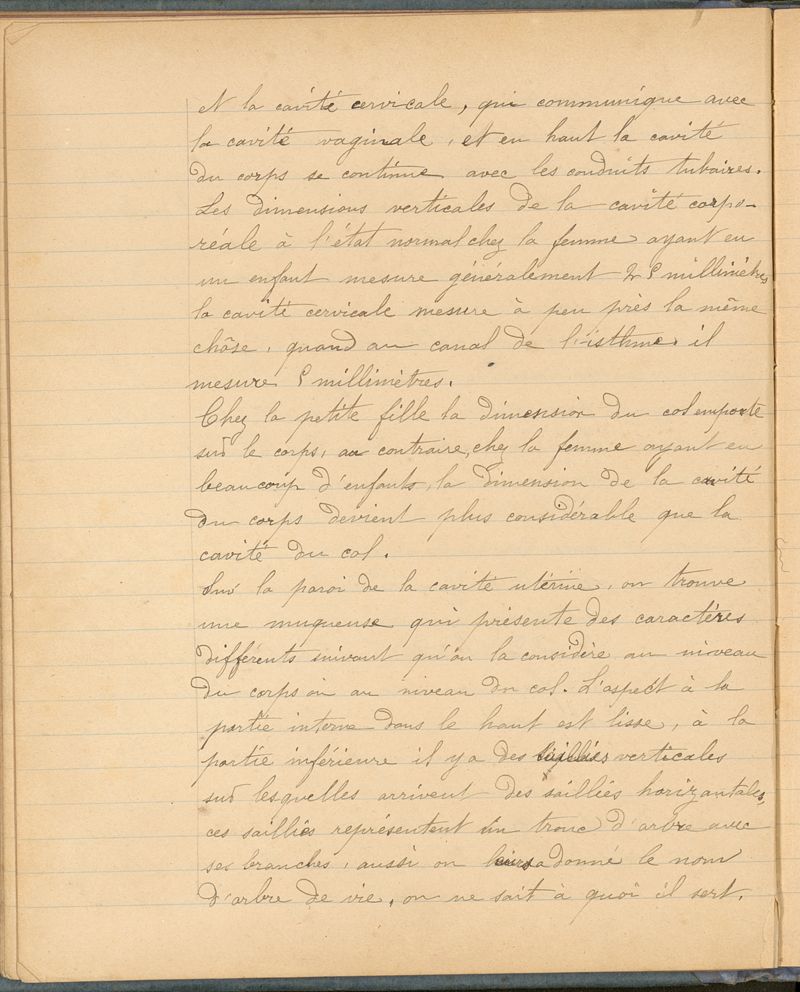 et la cavité cervicale, qui communique avec
la cavité vaginale, et en haut la cavité
du corps se continue avec les conduits tubaires.
Les dimensions verticales de la cavité corpo-
réale à l'état normal chez la femme ayant eu
un enfant mesure généralement millimètres
la cavité cervicale mesure à peu près la même
chôse, quand au canal de l'isthme, il
mesure 5 millimètres.
Chez la petite fille la dimension du col emporte
sur le corps, au contraire, chez la femme ayant eu
beaucoup d'enfants, la dimension de la cavité
du corps devient plus considérable que la
cavité du col.
Sur la paroi de la cavité utérine, on trouve
une muqueuse qui présente des caractéres
différents suivant qu'on la considère au niveau
du corps ou au niveau du col. L'aspect à la
partie interne dans le haut est lisse, à la
partie inférieure il y a des saillies verticales
sur lesquelles arrivent des saillies horizantales,
ces saillies représentent un tronc d'arbre avec
ses branches, aussi on leurs a donné le nom
d'arbre de vie, on ne sait à quoi il sert.